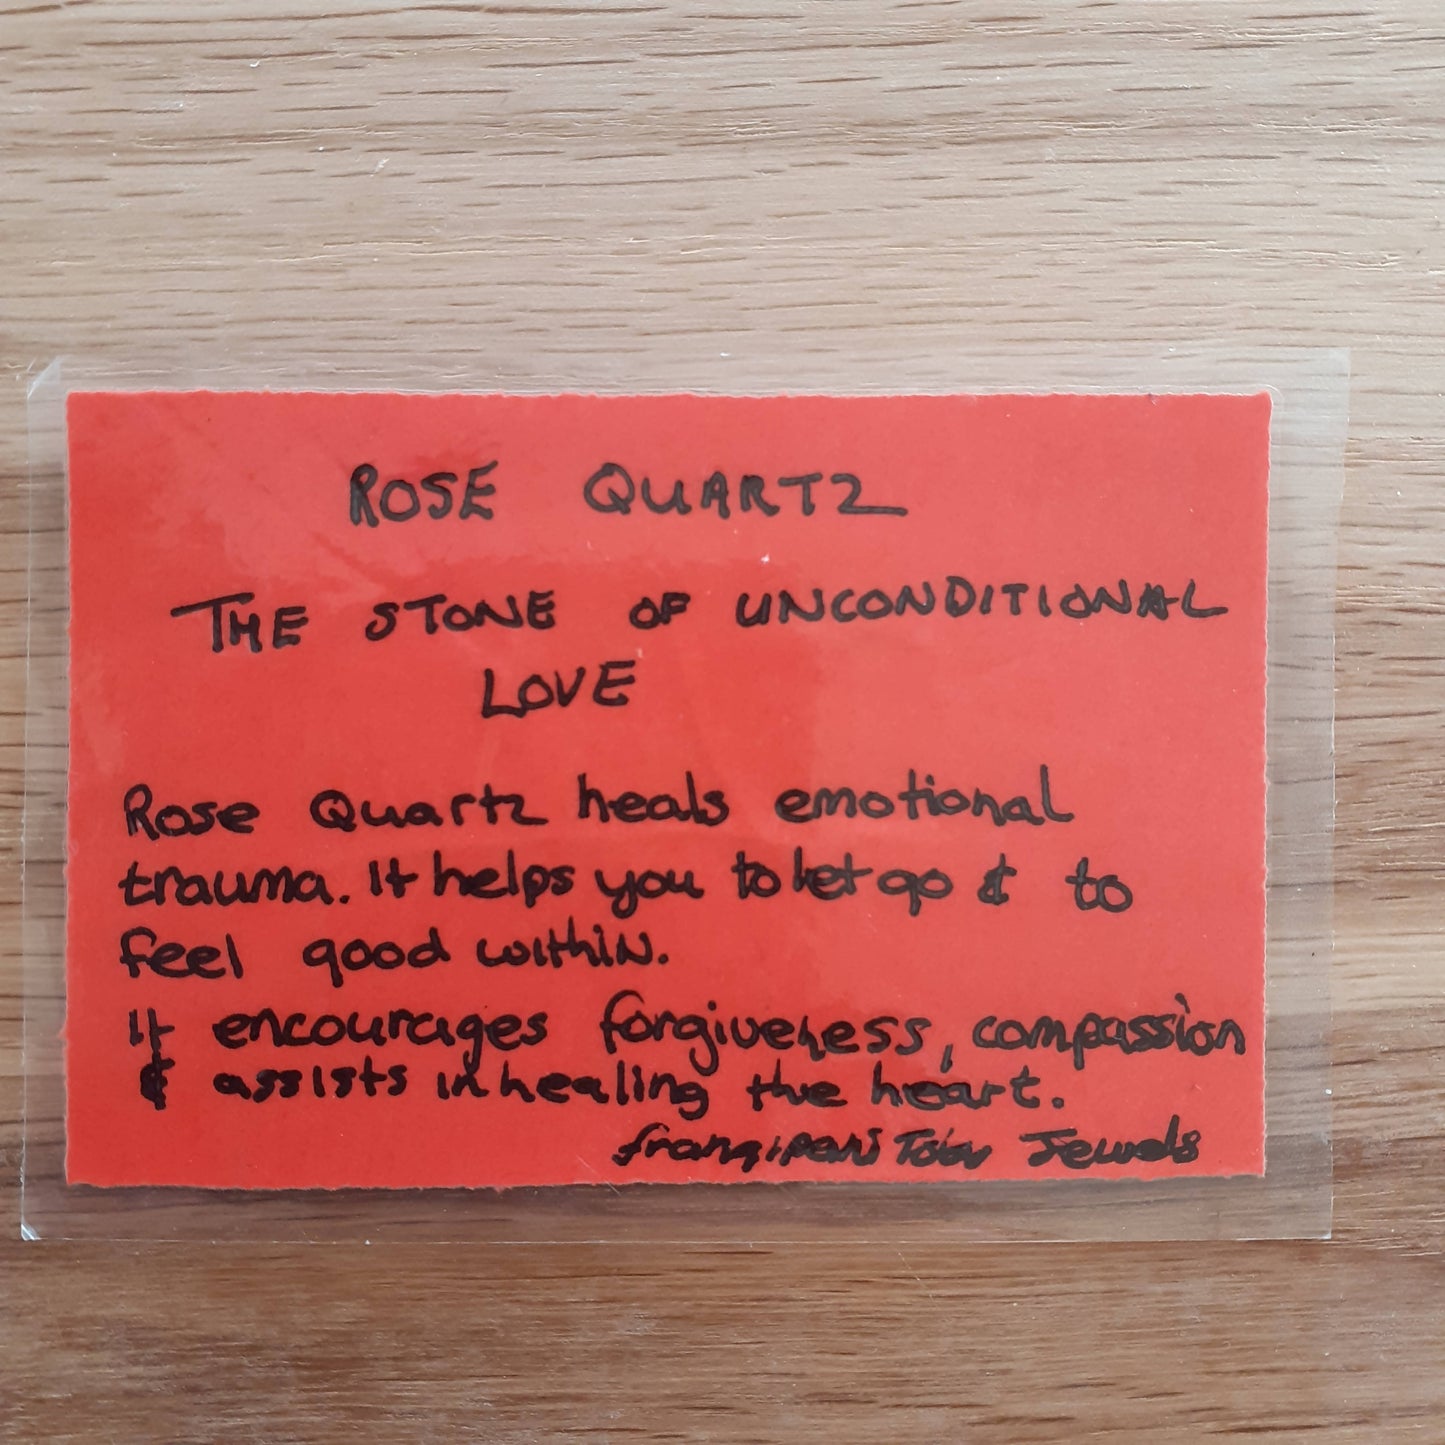 ROSE QUARTZ
THE STONE OF UNCONDITIONAL
LOVE
Rose Quartz heals emotional
trauma. It helps you to let go & to
feel good within.
It encourages forgiveness, compassion
& assists in healing the heart.
frangipani Jewels